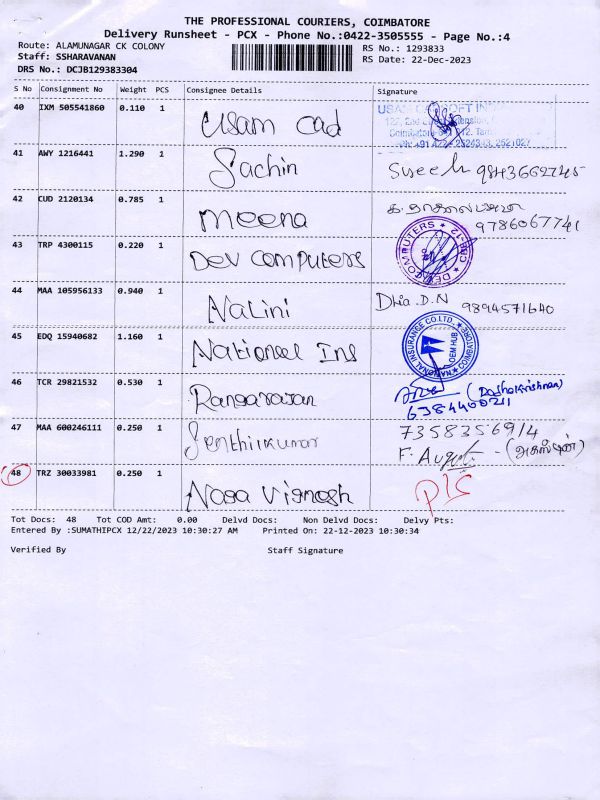 THE PROFESSIONAL COURIERS, COIMBATORE
Delivery Runsheet - PCX - Phone No.:0422-3505555 - Page No.:4
Route: ALAMUNAGAR CK COLONY RS No.: 1293833
Staff: SSHARAVANAN RS Date: 22-Dec-2023
DRS No.: DCJB129383304
S No Consignment No Weight PCS Consignee Details Signature
40 IXM 505541860 0.110 1 Usam Cad
41 AWY 1216441 1.290 1 Sachin 9843662745
42 CUD 2120134 0.785 1 Meena 9786067741
43 TRP 4300115 0.220 1 Dev Computers
44 MAA 105956133 0.940 1 Nalini Dhia.D.N 9894571640
45 EDQ 15940682 1.160 1 National Ins NATIONAL INSURANCE CO.LTD. OEM HUB COIMBATORE
46 TCR 29821532 0.530 1 Rangarajan 6384400211
47 MAA 600246111 0.250 1 Senthilkumar 7358356914
F. August - (அகஸ்டின்)
48 TRZ 30033981 0.250 1 Naga Vignesh
Tot Docs: 48 Tot COD Amt: 0.00 Delvd Docs: Non Delvd Docs: Delvy Pts:
Entered By :SUMATHIPCX 12/22/2023 10:30:27 AM Printed On: 22-12-2023 10:30:34
Verified By Staff Signature